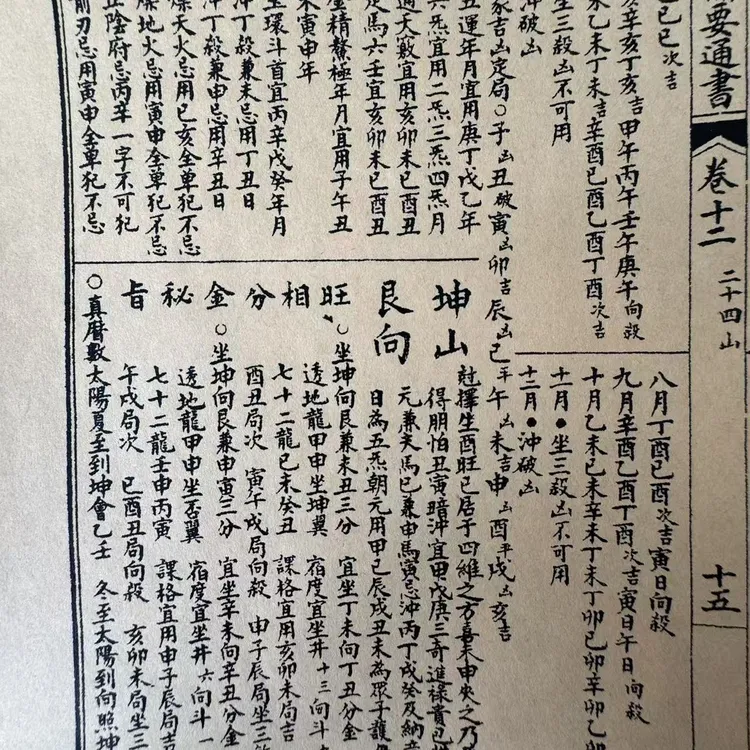 要通書
卷十二
二十四山
十五
巳巳次吉
亥辛亥丁亥吉 甲午丙午壬午庚午向殺
未乙未丁未吉 辛酉巳酉乙酉丁酉次吉
坐三殺凶不可用
沖破凶
家吉凶定局○子凶丑破寅凶卯吉辰凶巳平午凶未吉申凶酉平戌凶亥吉
丑運年月宜用庚丁戊乙年
六炁宜用二炁三炁四炁月
通天竅宜用亥卯未巳酉丑
走馬六壬宜亥卯未巳酉丑
坐精鰲極年月宜用子午丑
未寅申年
坐環斗首宜丙辛戊癸年月
沖丁殺兼未忌用丁丑日
沖丁殺兼申忌用辛丑日
燥天火忌用巳亥全單犯不忌
燥地火忌用寅申全單犯不忌
正陰府忌丙辛一字不可犯
前刃忌用寅申全單犯不忌
八月丁酉巳酉次吉寅日向殺
九月辛酉乙酉丁酉次吉寅日午日向殺
十月乙未巳未辛未丁未丁卯巳卯辛卯乙
十一月●坐三殺凶不可用
十二月●沖破凶
坤山
艮向
尅擇生酉旺巳居于四維之方喜未申央之乃
得朋怕丑寅暗沖宜甲戊庚三奇進祿貴巳
元兼未馬巳兼申馬寅忌沖丙丁戊癸及納音
日為五炁朝元用甲巳辰戌丑未為眾子護
旺相分金秘旨
○坐坤向艮兼未丑三分 宜坐丁未向丁丑分金
透地龍甲申坐坤翼 宿度宜坐井十三向斗
七十二龍巳未癸丑 課格宜用亥卯未局吉
酉丑局次 寅午戌局向殺 申子辰局坐三
○坐坤向艮兼申寅三分 宜坐辛未向辛丑分金
透地龍甲申坐否翼 宿度宜坐井六向斗一
七十二龍壬申丙寅 課格宜用申子辰局吉
午戌局次 巳酉丑局向殺 亥卯未局坐三
○真曆數太陽夏至到坤會乙壬 冬至太陽到向照坤